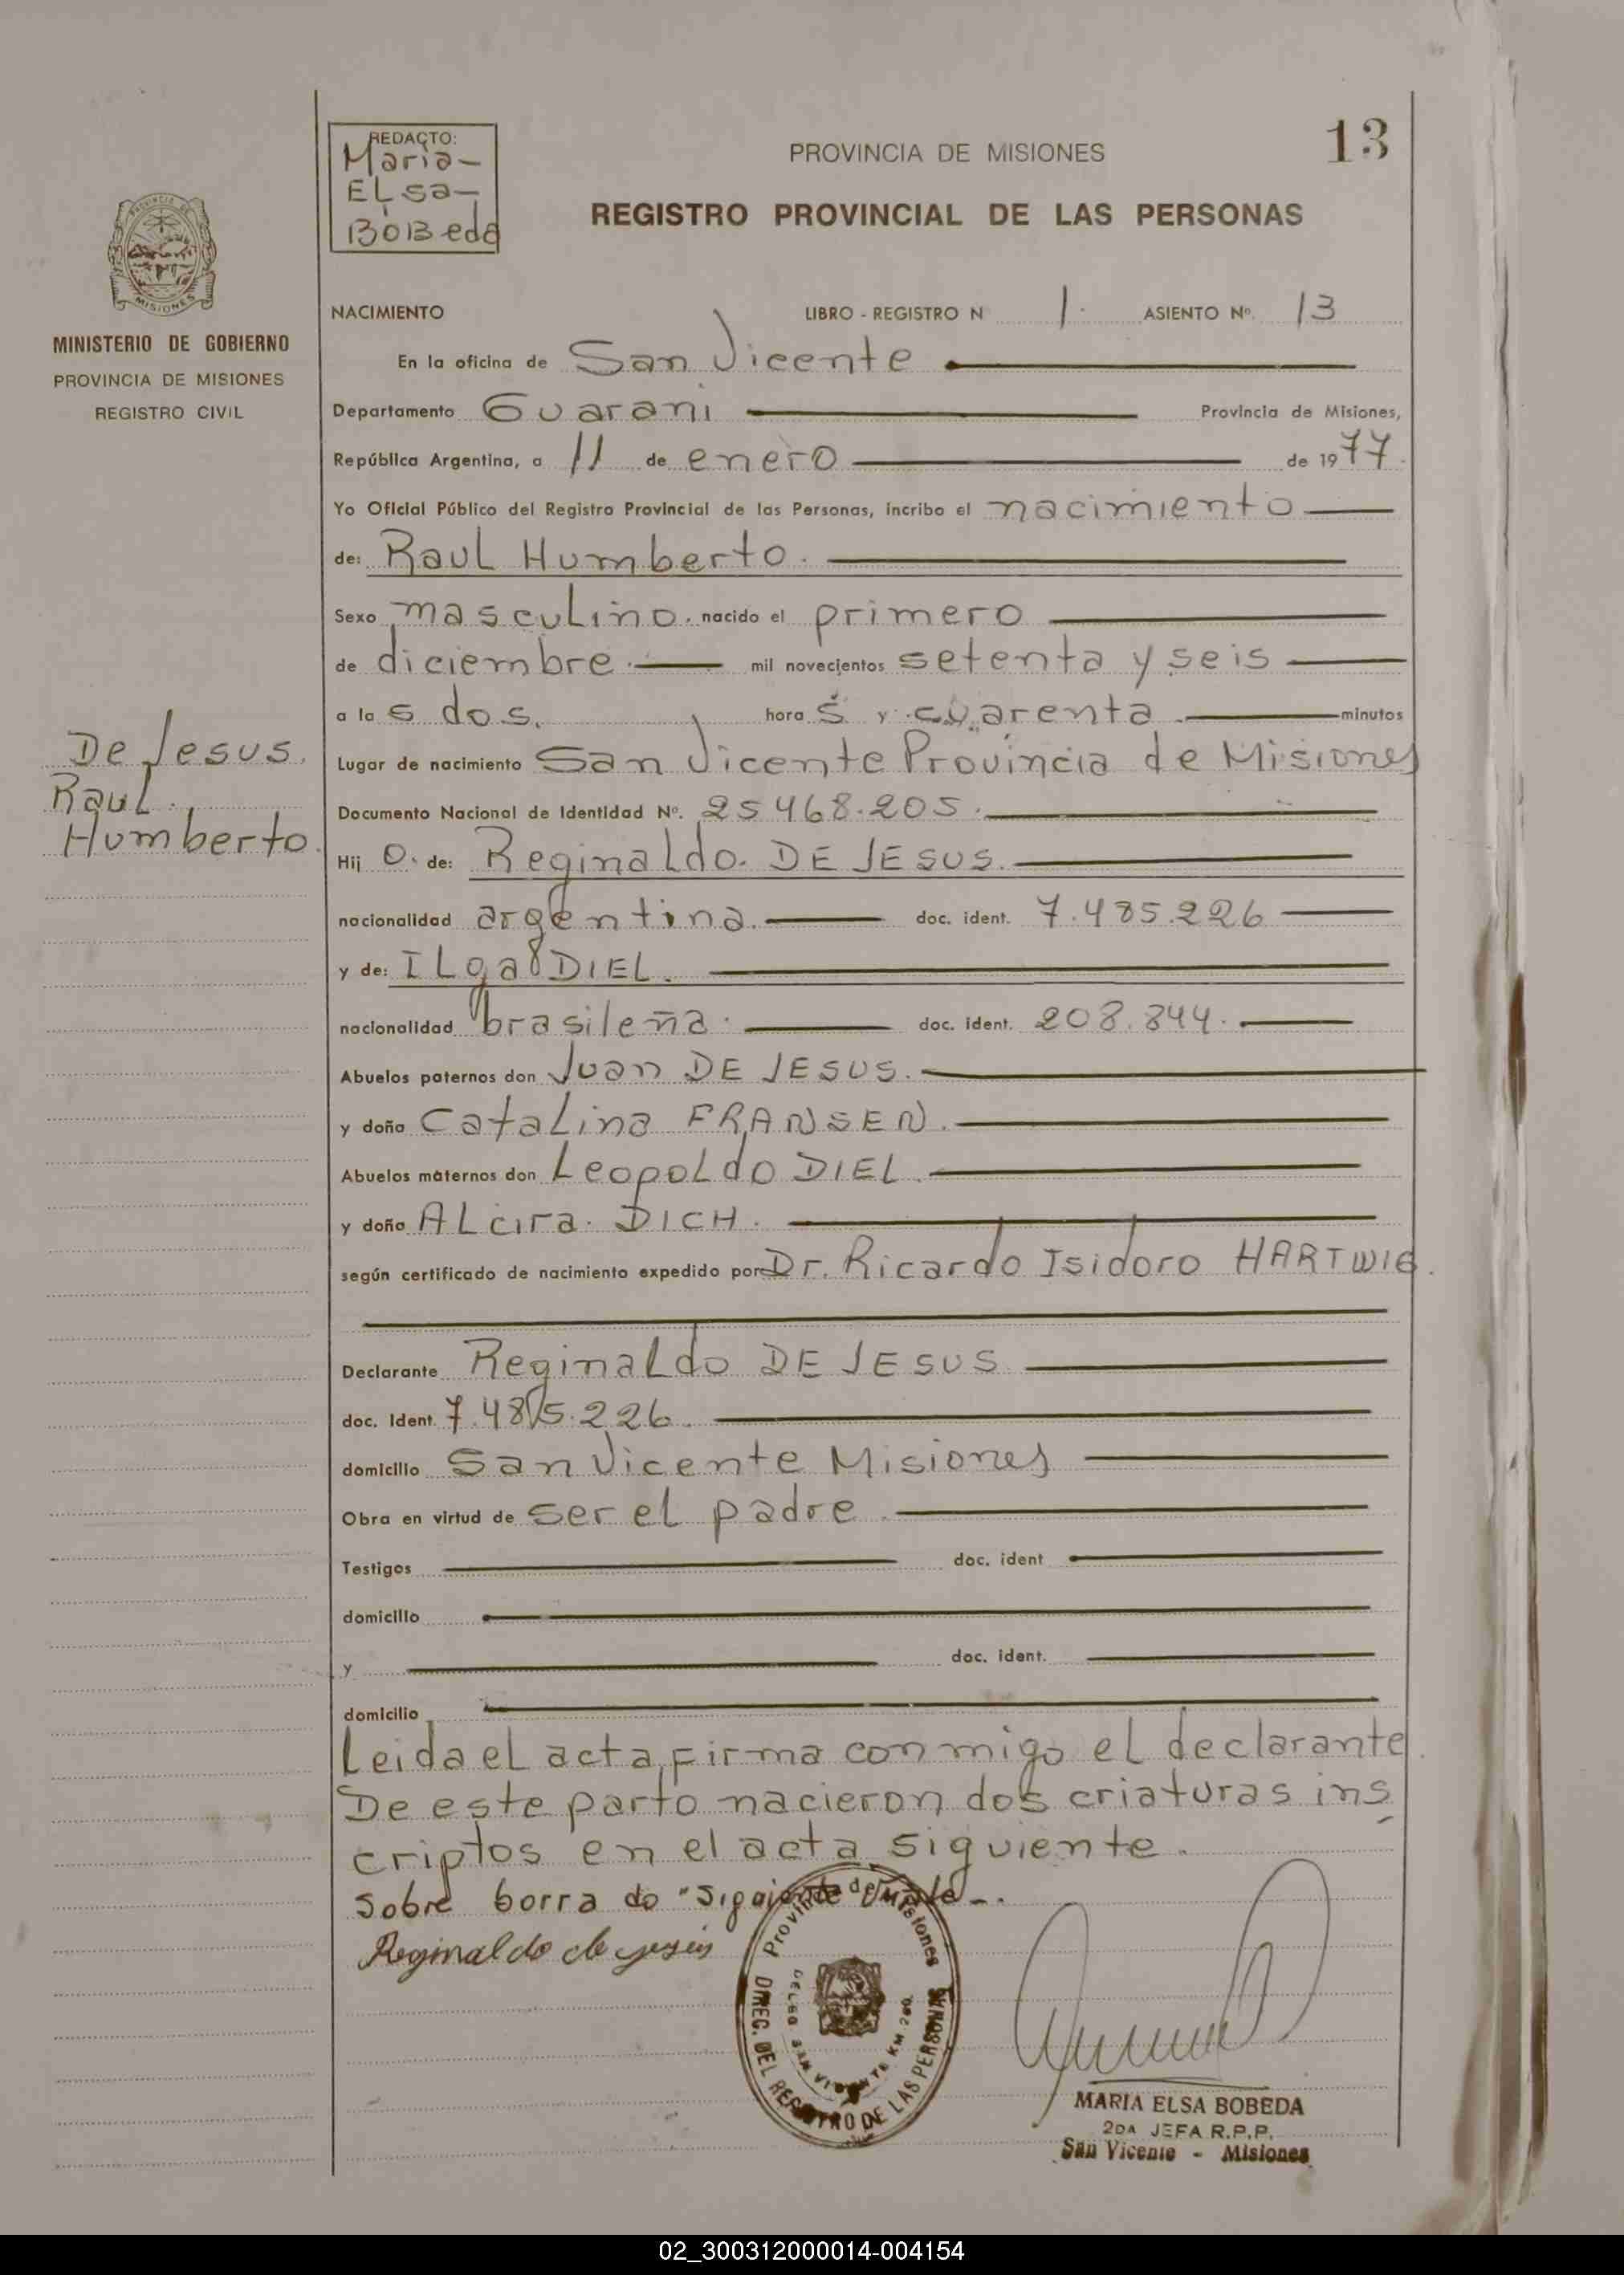 REDACTO:
Maria-
ELsa-
BOBeda
PROVINCIA DE MISIONES
13
REGISTRO PROVINCIAL DE LAS PERSONAS
PROVINCIA DE
MISIONES
MINISTERIO DE GOBIERNO
PROVINCIA DE MISIONES
REGISTRO CIVIL
NACIMIENTO LIBRO - REGISTRO N 1. ASIENTO Nº. 13
En la oficina de San Vicente
Departamento Guarani Provincia de Misiones,
República Argentina, a 11 de enero de 1977.
Yo Oficial Público del Registro Provincial de las Personas, incribo el nacimiento
de: Raul Humberto.
Sexo masculino. nacido el primero
de diciembre. mil novecientos setenta y seis
a la s dos. hora s y cuarenta minutos
De Jesus.
Raul
Humberto.
Lugar de nacimiento San Vicente Provincia de Misiones
Documento Nacional de Identidad Nº. 25468.205.
Hij o. de: Reginaldo. DE JESUS.
nacionalidad argentina. doc. ident. 7.485.226
y de: ILga DIEL.
nacionalidad brasileña. doc. ident. 208.844.
Abuelos paternos don Juan DE JESUS.
y doña Catalina FRANSEN.
Abuelos maternos don Leopoldo DIEL.
y doña ALcira. DICH.
según certificado de nacimiento expedido por Dr. Ricardo Isidoro HARTWIG.
Declarante Reginaldo DE JESUS
doc. Ident. 7.485.226.
domicilio San Vicente Misiones
Obra en virtud de ser el padre.
Testigos doc. ident
domicilio
y doc. ident.
domicilio
Leida el acta, firma conmigo el declarante.
De este parto nacieron dos criaturas ins
criptos en el acta siguiente.
Sobre borra do "Siguiente" Vale-.
Reginaldo de jesus
Provincia de Misiones
DIREC. DEL REGISTRO DE LAS PERSONAS
DELEG. SAN VICENTE KM 260.
MARIA ELSA BOBEDA
2DA JEFA R.P.P.
San Vicente - Misiones
02_300312000014-004154